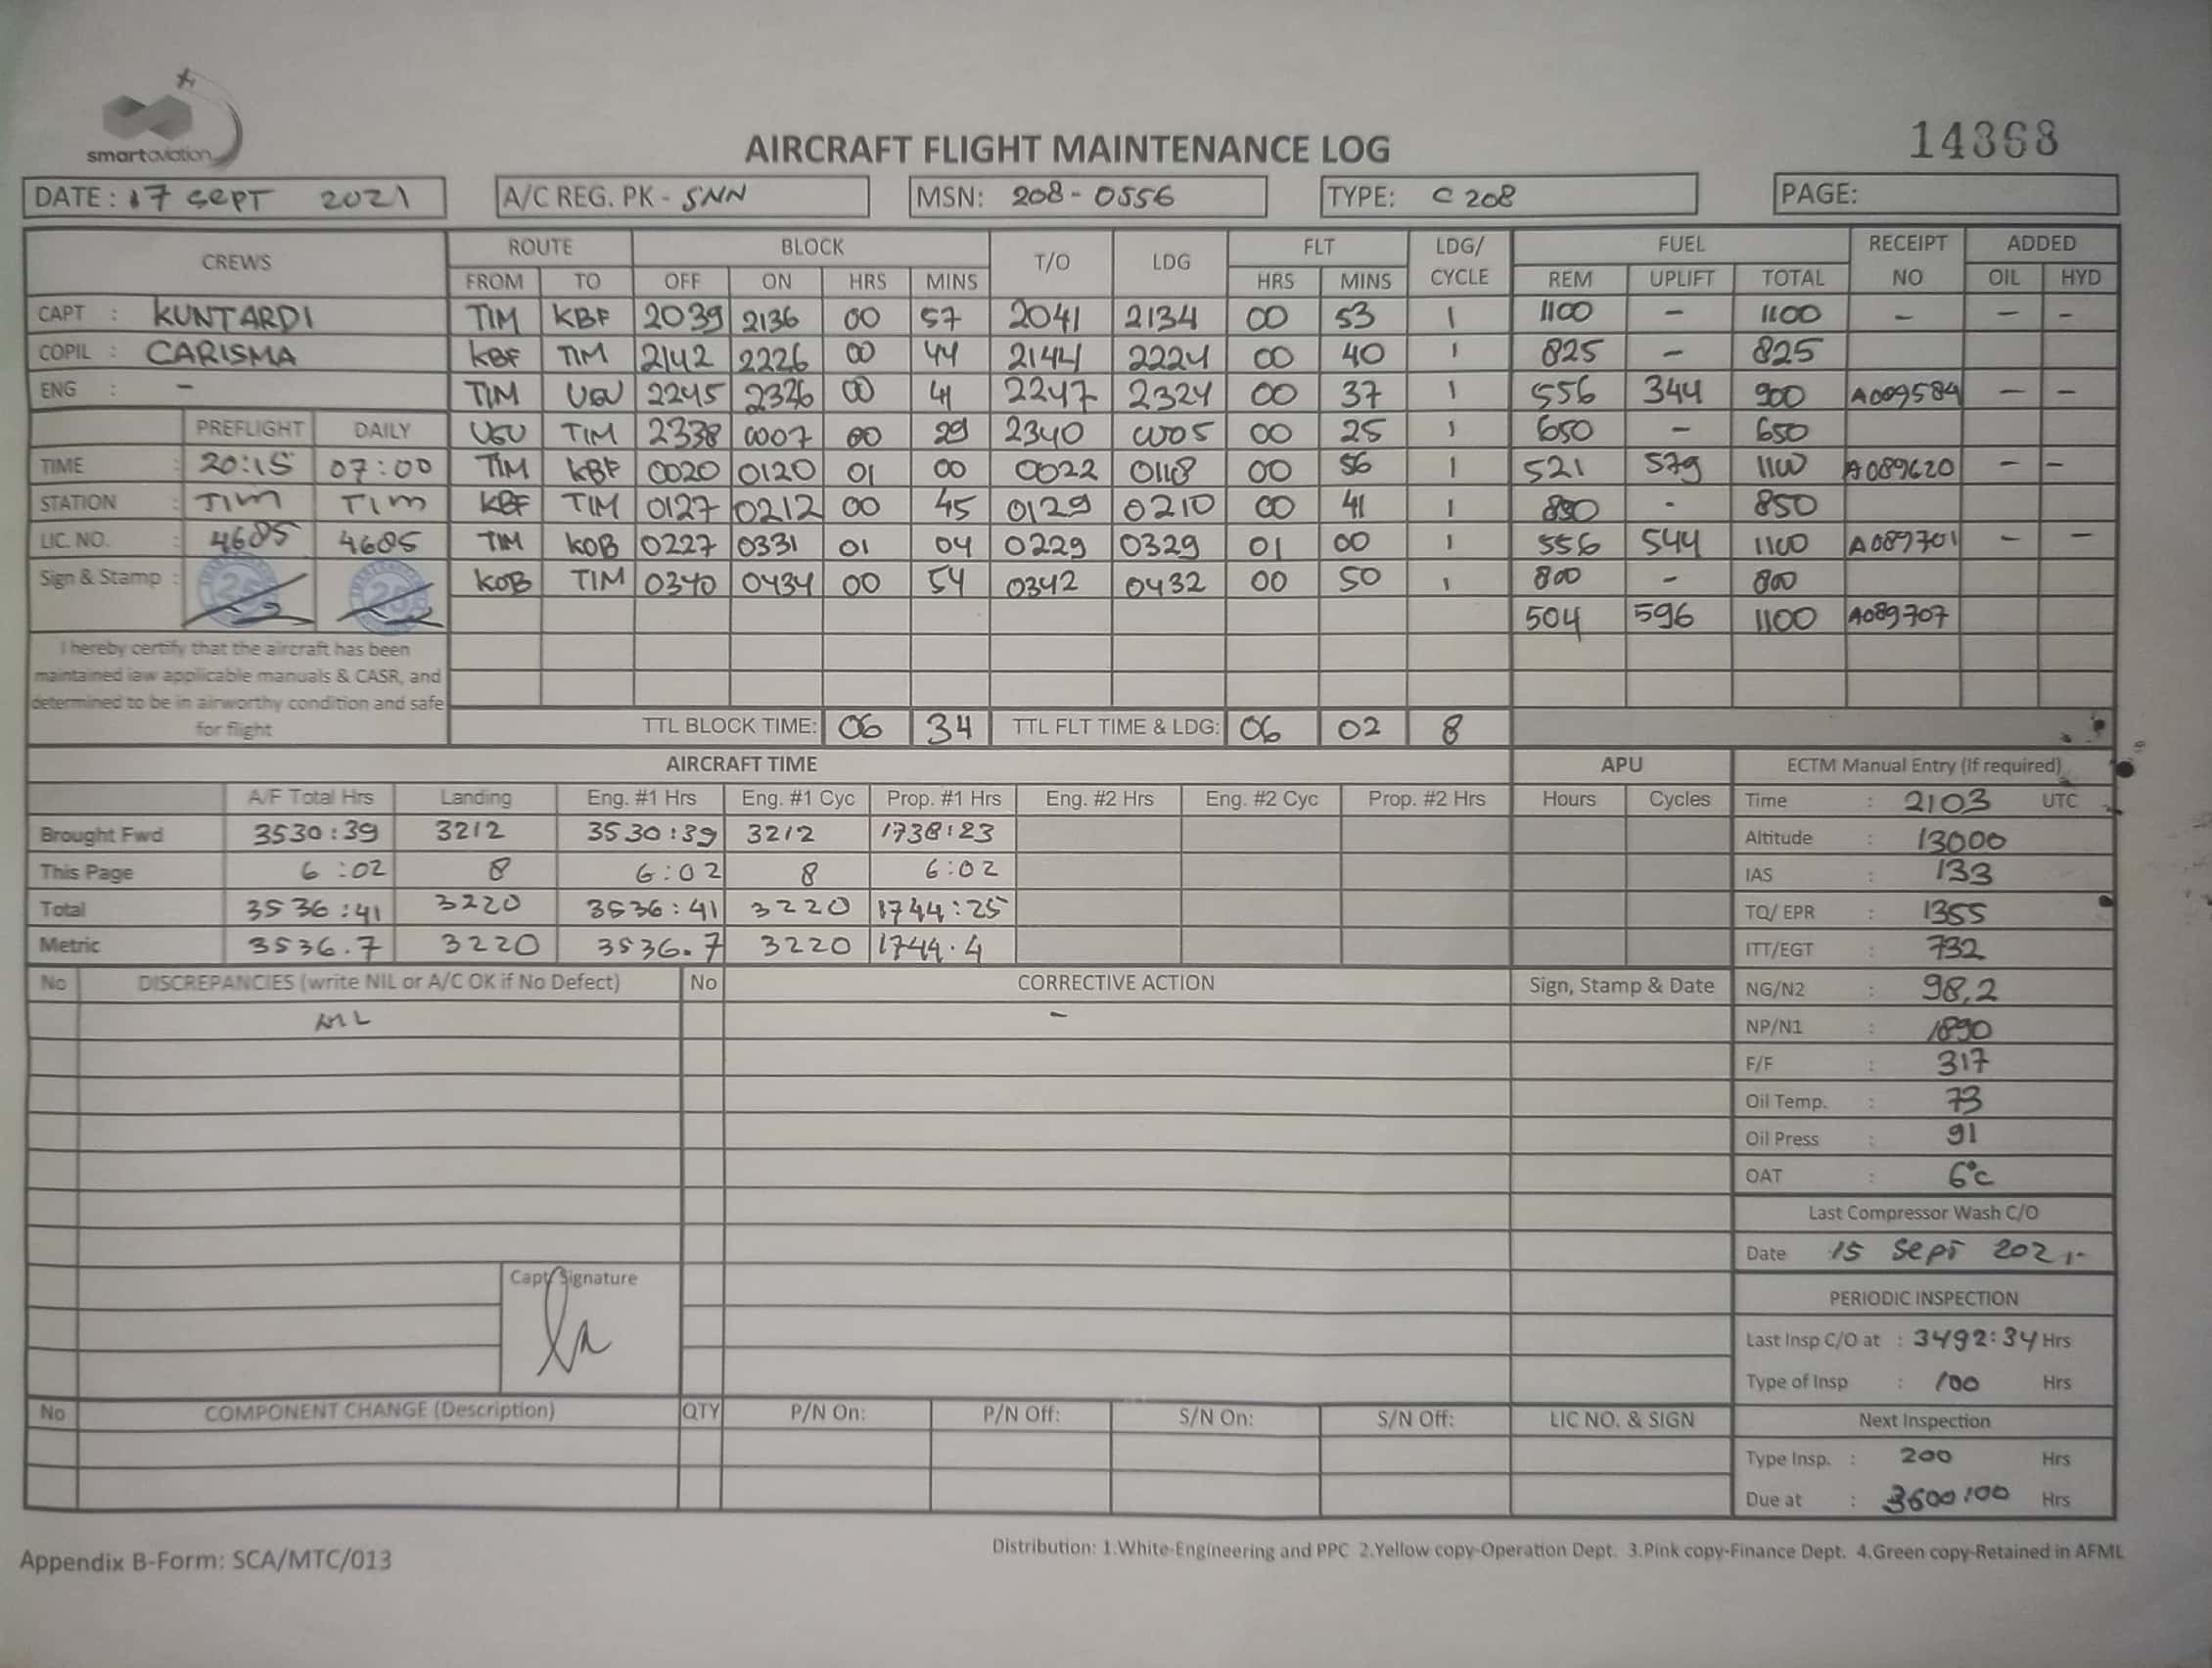 smartaviation
AIRCRAFT FLIGHT MAINTENANCE LOG
14368
DATE : 17 SEPT 2021 A/C REG. PK - SNN MSN: 208-0556 TYPE: C 208 PAGE:
CREWS ROUTE BLOCK T/O LDG FLT LDG/ FUEL RECEIPT ADDED
FROM TO OFF ON HRS MINS HRS MINS CYCLE REM UPLIFT TOTAL NO OIL HYD
CAPT : KUNTARDI TIM KBF 2039 2136 00 57 2041 2134 00 53 1 1100 - 1100 - - -
COPIL : CARISMA KBF TIM 2142 2226 00 44 2144 2224 00 40 1 825 - 825
ENG : - TIM UGU 2245 2326 00 41 2247 2324 00 37 1 556 344 900 A009584 - -
PREFLIGHT DAILY UGU TIM 2338 0007 00 29 2340 0005 00 25 1 650 - 650
TIME : 20:15 07:00 TIM KBF 0020 0120 01 00 0022 0118 00 56 1 521 579 1100 A089620 - -
STATION : TIM TIM KBF TIM 0127 0212 00 45 0129 0210 00 41 1 - 850
LIC. NO. : 4685 4685 TIM KOB 0227 0331 01 04 0229 0329 01 00 1 556 544 1100 A089701 - -
Sign & Stamp : KOB TIM 0340 0434 00 54 0342 0432 00 50 1 800 - 800
504 596 1100 A089707
I hereby certify that the aircraft has been
maintained iaw applicable manuals & CASR, and
determined to be in airworthy condition and safe
for flight
TTL BLOCK TIME: 06 34 TTL FLT TIME & LDG: 06 02 8
AIRCRAFT TIME APU ECTM Manual Entry (If required)
A/F Total Hrs Landing Eng. #1 Hrs Eng. #1 Cyc Prop. #1 Hrs Eng. #2 Hrs Eng. #2 Cyc Prop. #2 Hrs Hours Cycles Time : 2103 UTC
Brought Fwd 3530:39 3212 3530:39 3212 1738:23 Altitude : 13000
This Page 6:02 8 6:02 8 6:02 IAS : 133
Total 3536:41 3220 3536:41 3220 1744:25 TQ/ EPR : 1355
Metric 3536.7 3220 3536.7 3220 1744.4 ITT/EGT : 732
No DISCREPANCIES (write NIL or A/C OK if No Defect) No CORRECTIVE ACTION Sign, Stamp & Date NG/N2 : 98,2
NIL -
NP/N1 : 1890
F/F : 317
Oil Temp. : 73
Oil Press : 91
OAT : 6°C
Last Compressor Wash C/O
Date 15 Sept 2021-
Capt Signature
PERIODIC INSPECTION
Last Insp C/O at : 3492:34 Hrs
Type of Insp : 100 Hrs
No COMPONENT CHANGE (Description) QTY P/N On: P/N Off: S/N On: S/N Off: LIC NO. & SIGN Next Inspection
Type Insp. : 200 Hrs
Due at : 3600:00 Hrs
Appendix B-Form: SCA/MTC/013
Distribution: 1.White-Engineering and PPC 2.Yellow copy-Operation Dept. 3.Pink copy-Finance Dept. 4.Green copy-Retained in AFML